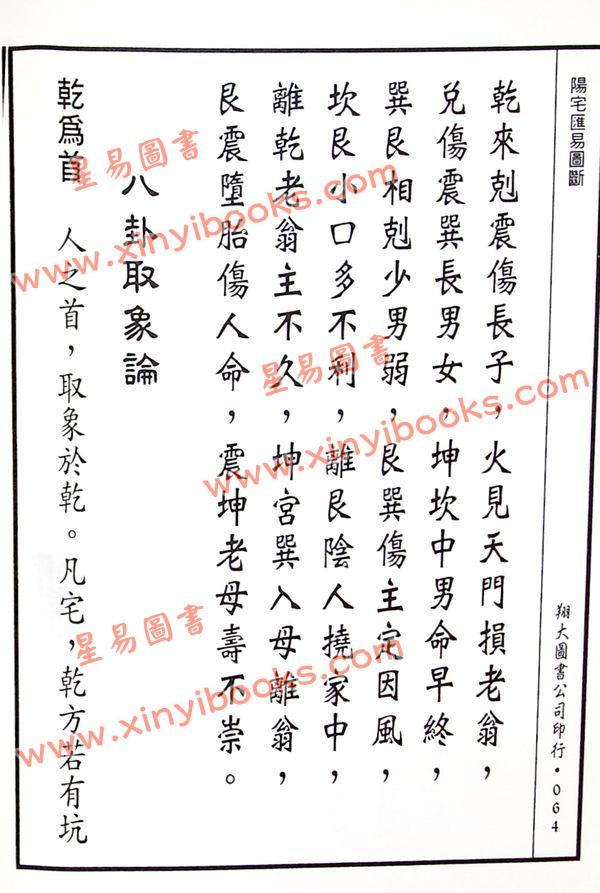 陽宅匯易圖斷
翔大圖書公司印行•064
乾來剋震傷長子，火見天門損老翁，
兌傷震巽長男女，坤坎中男命早終，
巽艮相剋少男弱，艮巽傷主定因風，
坎艮小口多不利，離艮陰人撓家中，
離乾老翁主不久，坤宮巽入母離翁，
艮震墮胎傷人命，震坤老母壽不崇。
八卦取象論
乾爲首　人之首，取象於乾。凡宅，乾方若有坑
星易圖書
www.xinyibooks.com
星易圖書
www.xinyibooks.com
星易圖書
www.xinyibooks.com